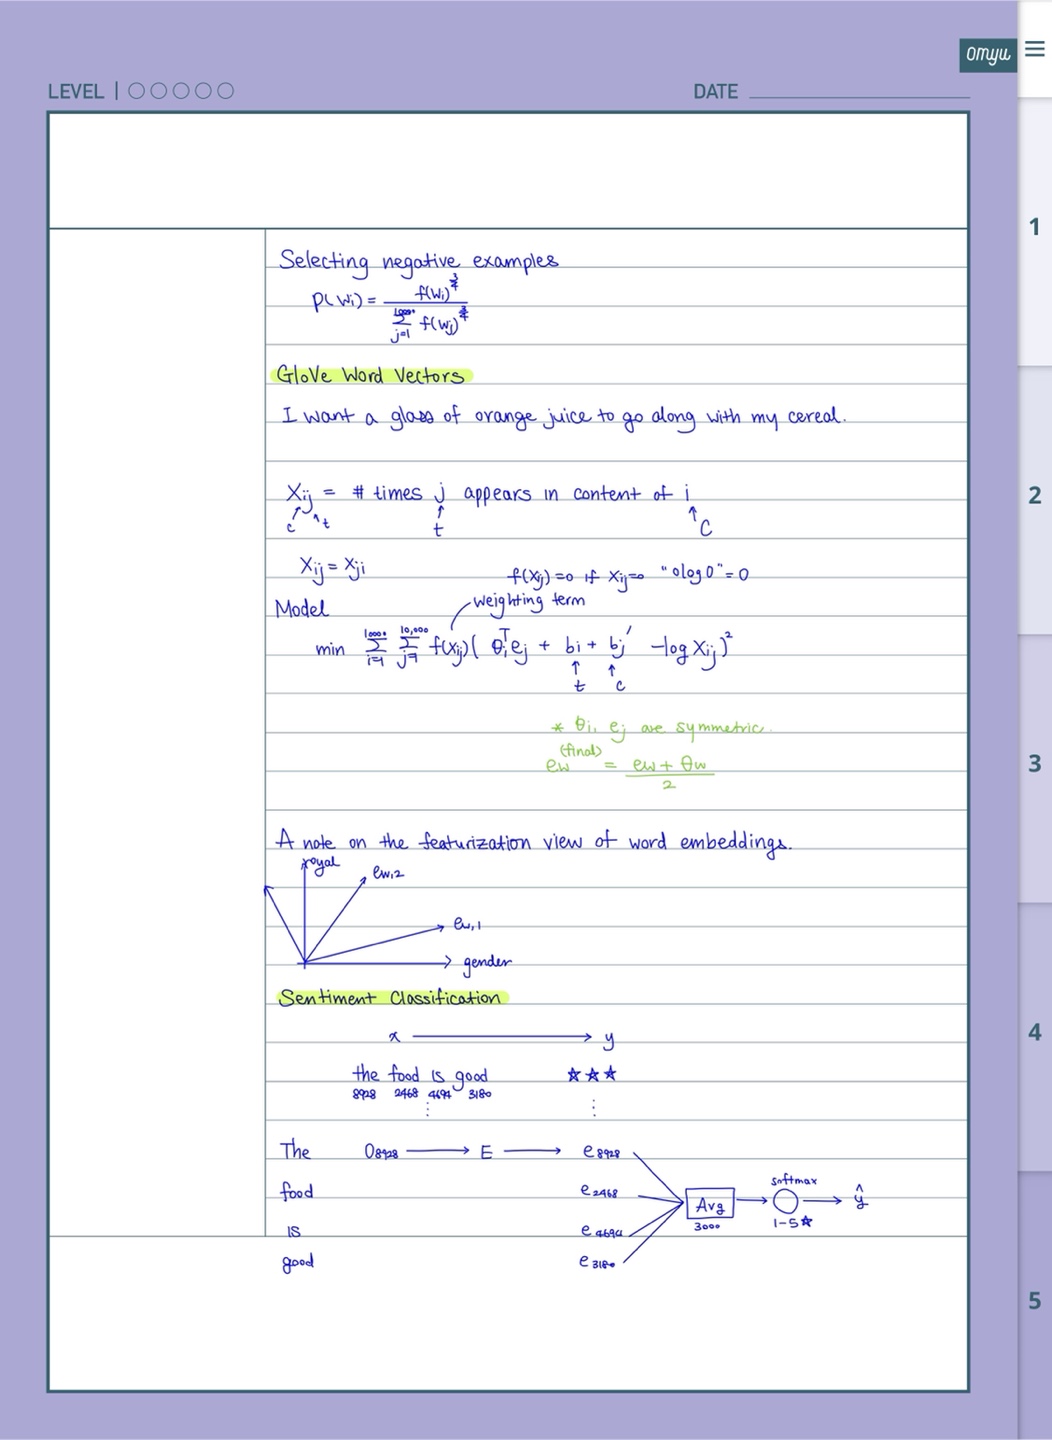 omyu
LEVEL | ○○○○○ DATE
1
2
3
4
5
Selecting negative examples
P(wi) = f(wi)^3/4 / Σ j=1 10000 f(wj)^3/4
GloVe Word Vectors
I want a glass of orange juice to go along with my cereal.
Xij = # times j appears in content of i
c t t C
Xij = Xji
f(Xij) = 0 if Xij=0 "0log0" = 0
Model
weighting term
min Σ i=1 10000 Σ j=1 10,000 f(Xij)( θi^T ej + bi + bj' - log Xij)²
t c
* θi, ej are symmetric.
ew (final) = ew + θw / 2
A note on the featurization view of word embeddings.
royal
ew,2
ew,1
gender
Sentiment Classification
x → y
the food is good ★★★
8928 2468 4694 3180
⋮ ⋮
The O8928 → E → e8928
food e2468
is e4694
good e3180
Avg
3000
softmax
1-5★
→ ŷ